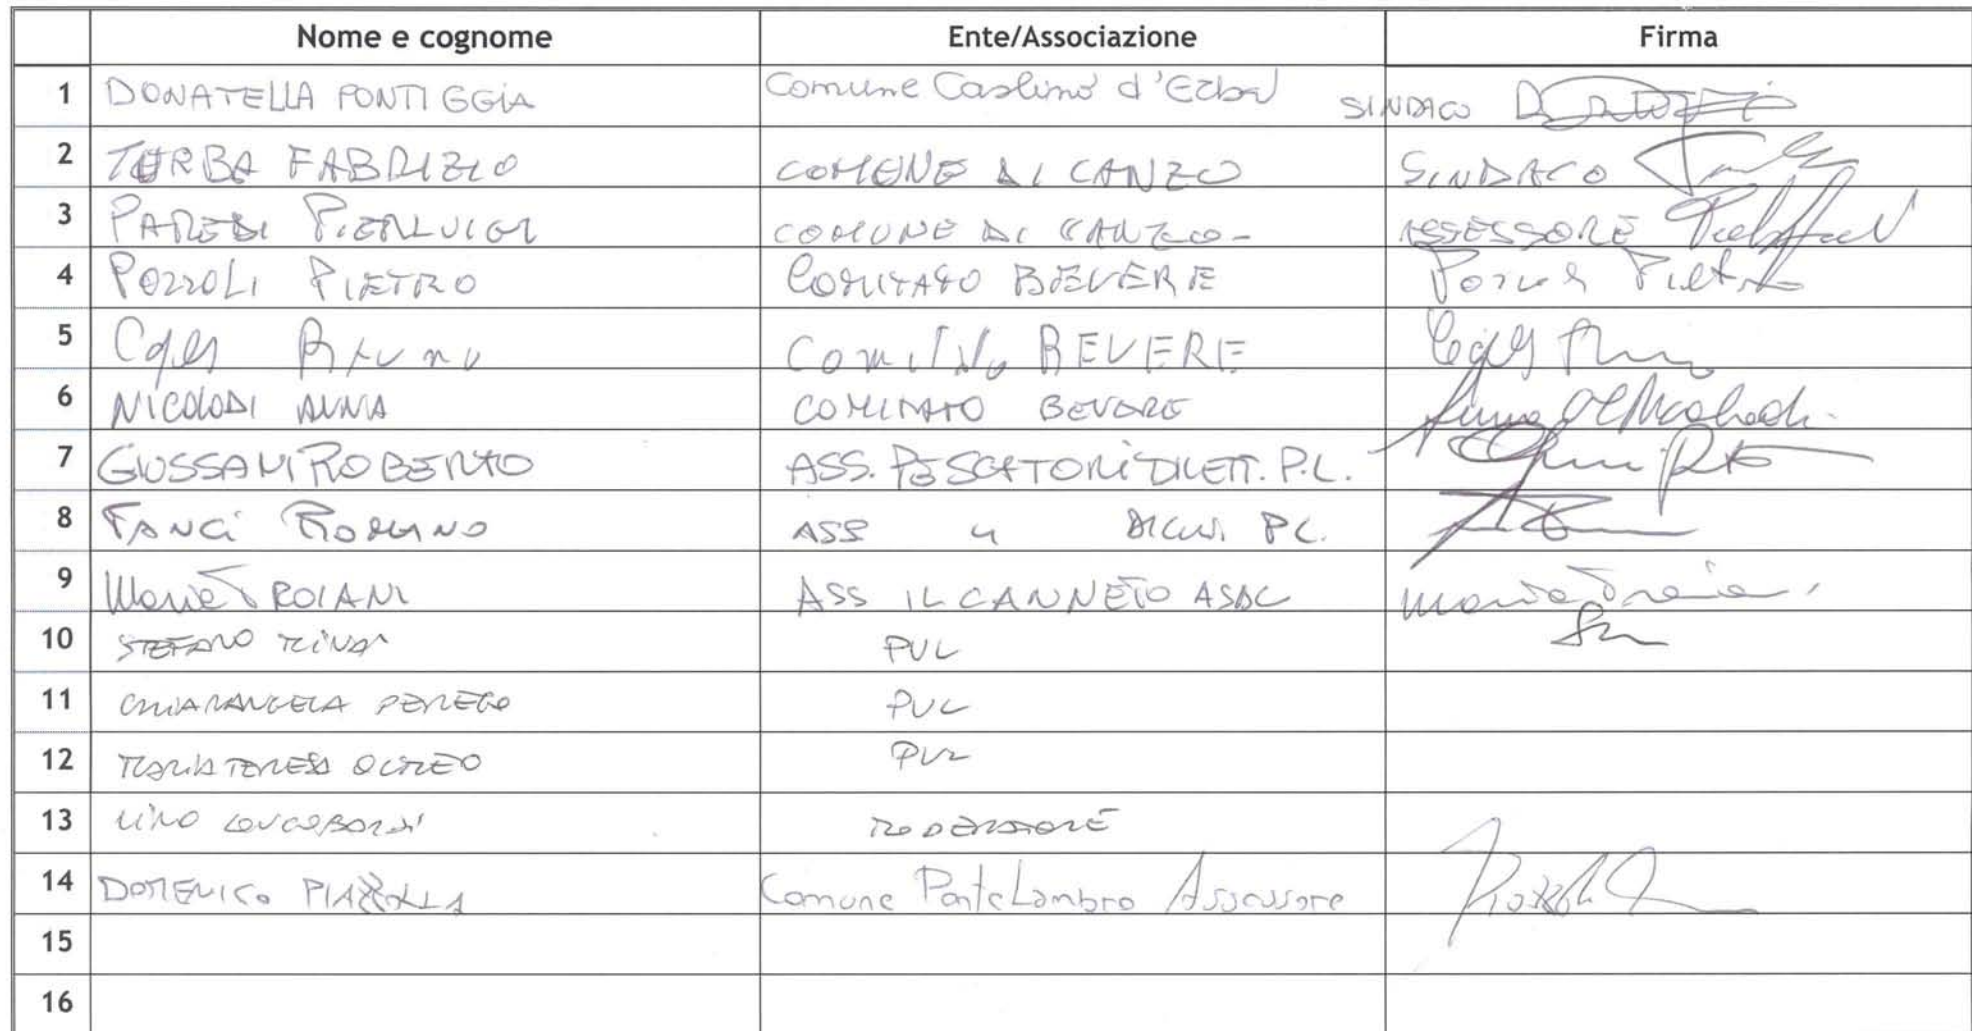 Nome e cognome Ente/Associazione Firma
1 DONATELLA PONTIGGIA Comune Caslino d'Erba SINDACO
2 TURBA FABRIZIO COMUNE DI CANZO SINDACO
3 PAREDI PIERLUIGI COMUNE DI CANZO- ASSESSORE
4 POZZOLI PIETRO COMITATO BEVERE Pozzoli Pietro
5 Bruno Comitato BEVERE
6 NICOLODI ANNA COMITATO BEVERE Anna Nicolodi
7 GIUSSANI ROBERTO ASS. PESCATORI DILETT. P.L.
8 FANCI ROMANO ASS " P.L.
9 Maria TROIANI ASS IL CANNETO Maria Troiani
10 STEFANO RIVA PUL
11 CHIARANGELA PEREGO PUL
12 MARIA TERESA PUL
13 LINO MODERATORE
14 DOMENICO PIAZZOLLA Comune Ponte Lambro Assessore
15
16